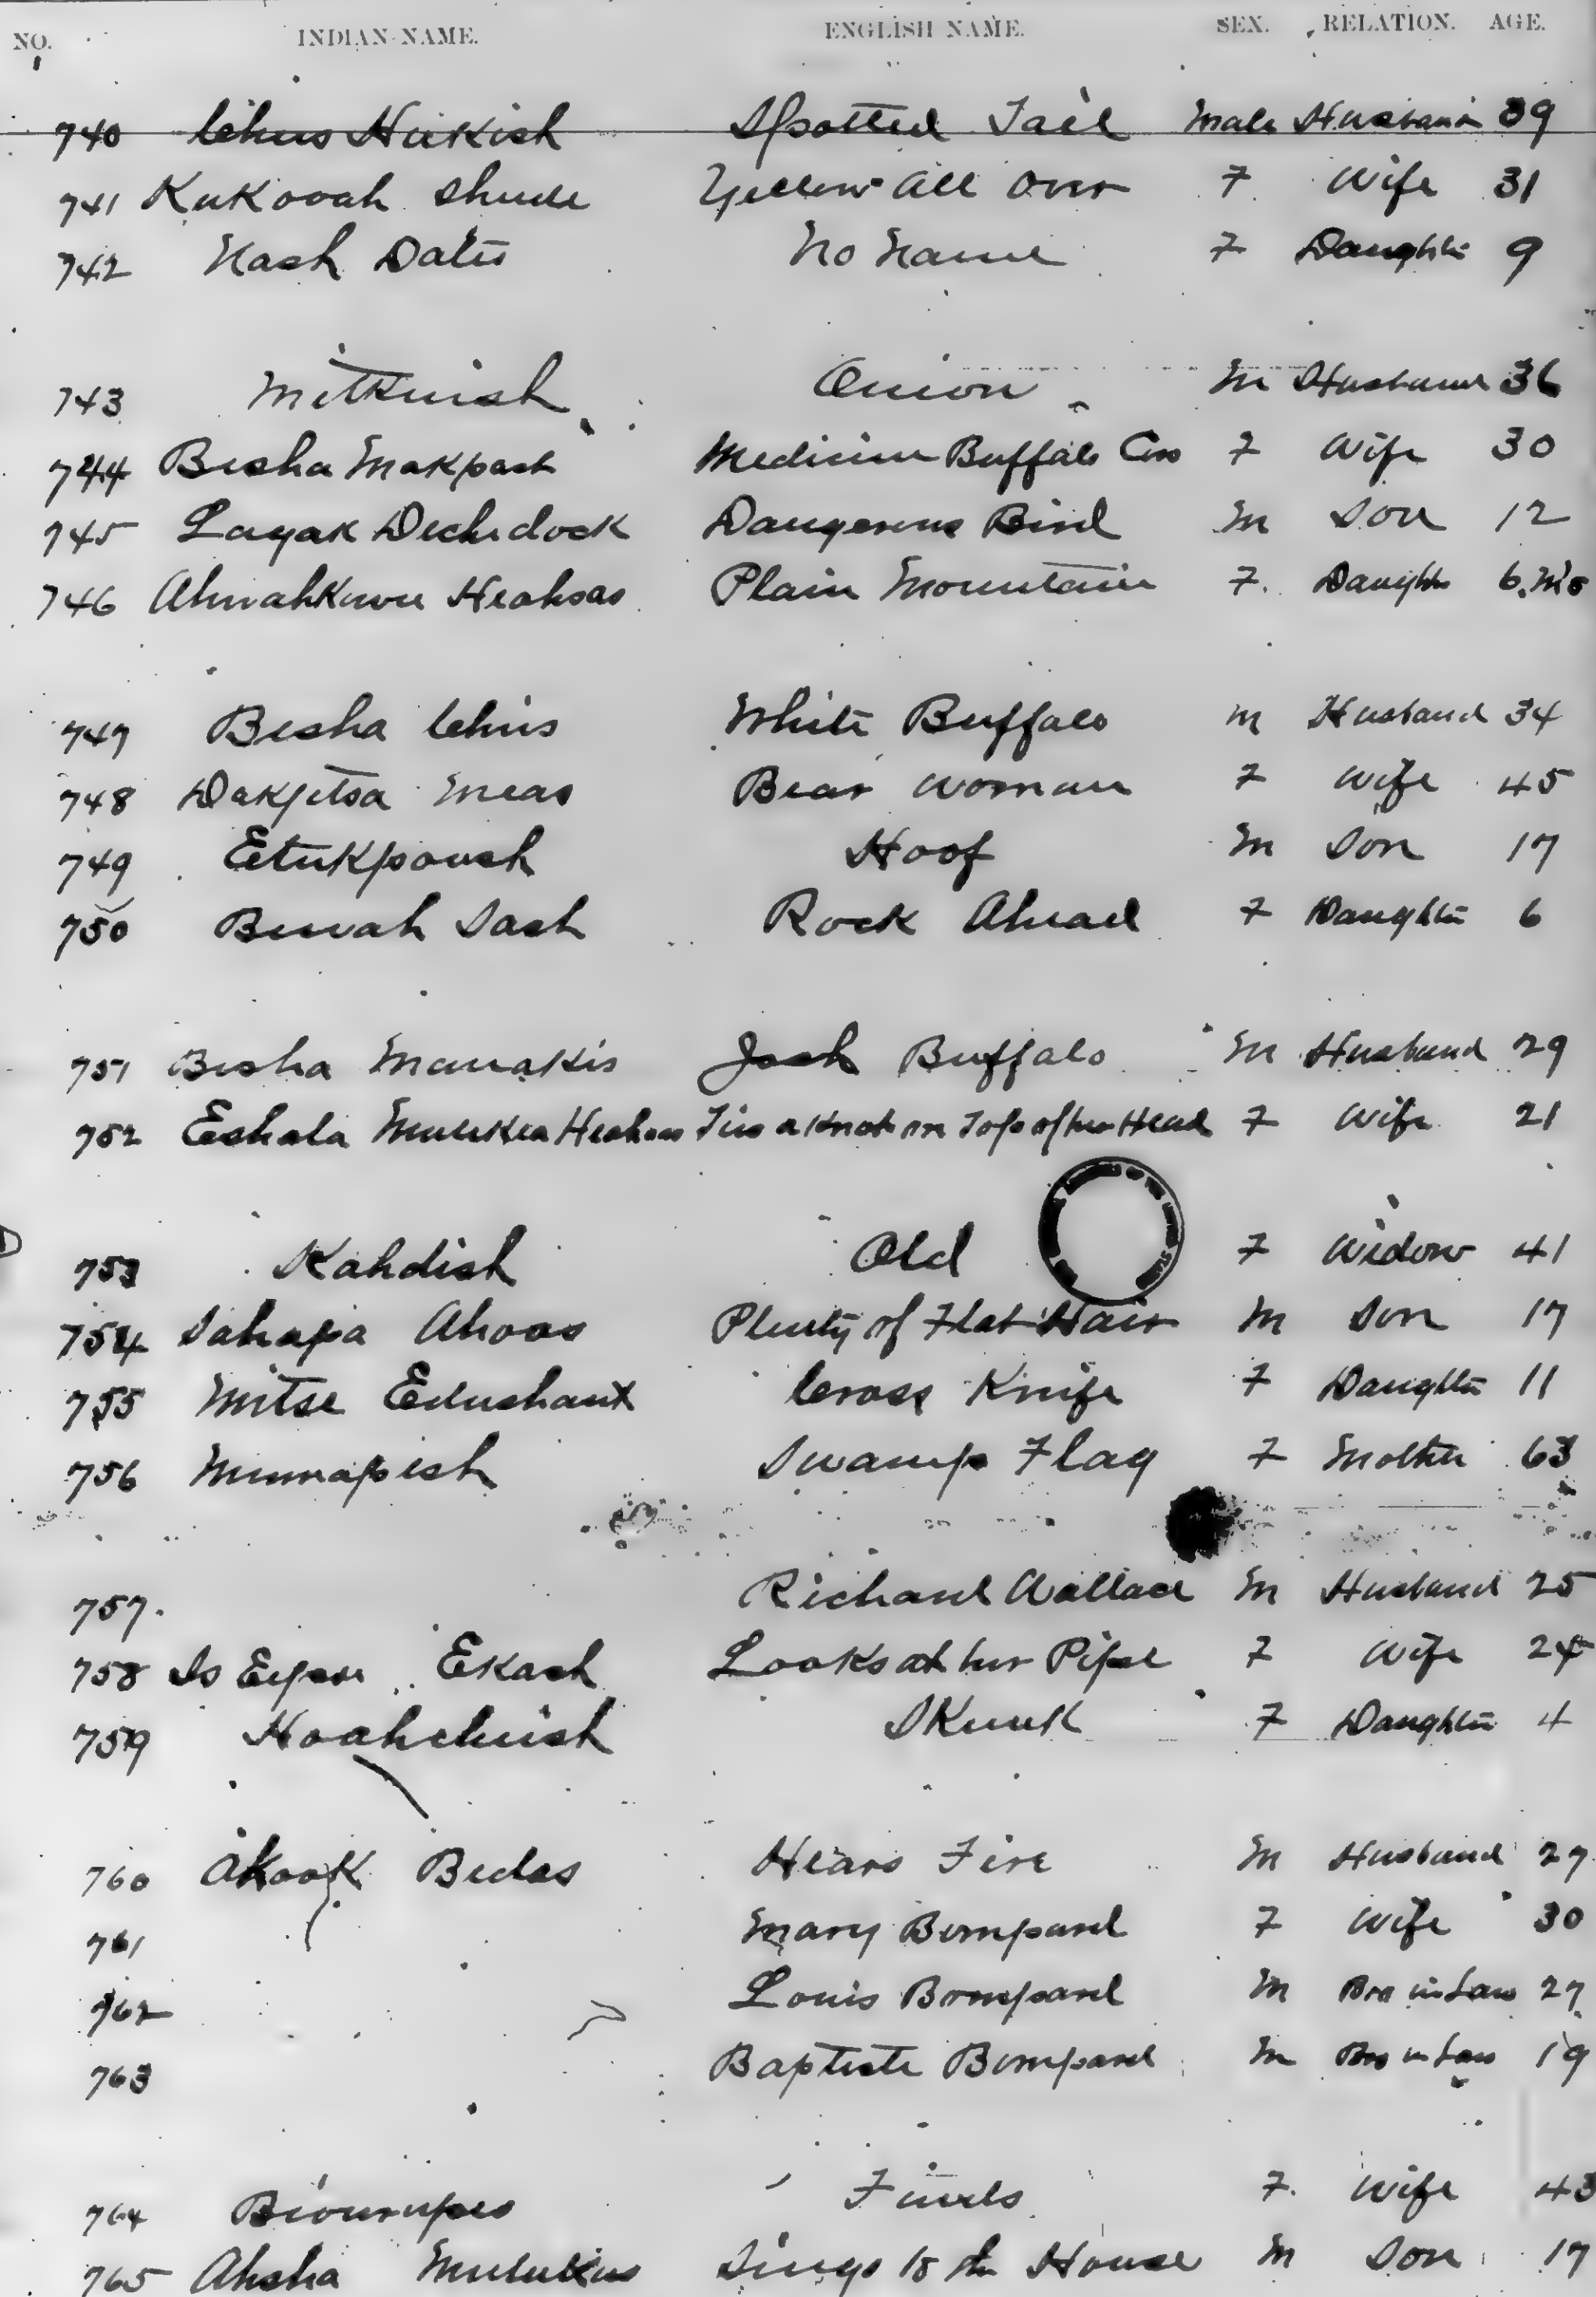 NO. INDIAN NAME. ENGLISH NAME. SEX. RELATION. AGE.
740 Chus Hukish Spotted Tail Male Husband 39
741 Kukooah Shude Yellow All Over F. Wife 31
742 Nash Dates No Name F Daughter 9
743 Mitkuish Onion M Husband 36
744 Besha Makpash Medicine Buffalo Cow F Wife 30
745 Lagak Dechedock Dangerous Bird M Son 12
746 Heahsas Plain Mountain F. Daughter 6. Mo
747 Besha Chis White Buffalo M Husband 34
748 Dakpitsa Meas Bear Woman F Wife 45
749 Etukpoush Hoof M Son 17
750 Bewah Sash Rock Ahead F Daughter 6
751 Besha Manakis Josh Buffalo M Husband 29
752 Eshala Heahsas Ties a Knot on Top of her Head F Wife 21
753 Kahdish Old F Widow 41
754 Sahapa Ahoos Plenty of Flat Hair M Son 17
755 Mitse Edushant Cross Knife F Daughter 11
756 Munnapish Swamp Flag F Mother 63
757. Richard Wallace M Husband 25
758 Is Ekash Looks at her Pipe F Wife 24
759 Hoahchuish Skunk F Daughter 4
760 Akook Bedas Hears Fire M Husband 27
761 Mary Bompard F Wife 30
762 Louis Bompard M Bro in Law 27
763 Baptiste Bompard M Bro in Law 19
764 Finds F. Wife 43
765 Ahsha Sings to the House M Son 17